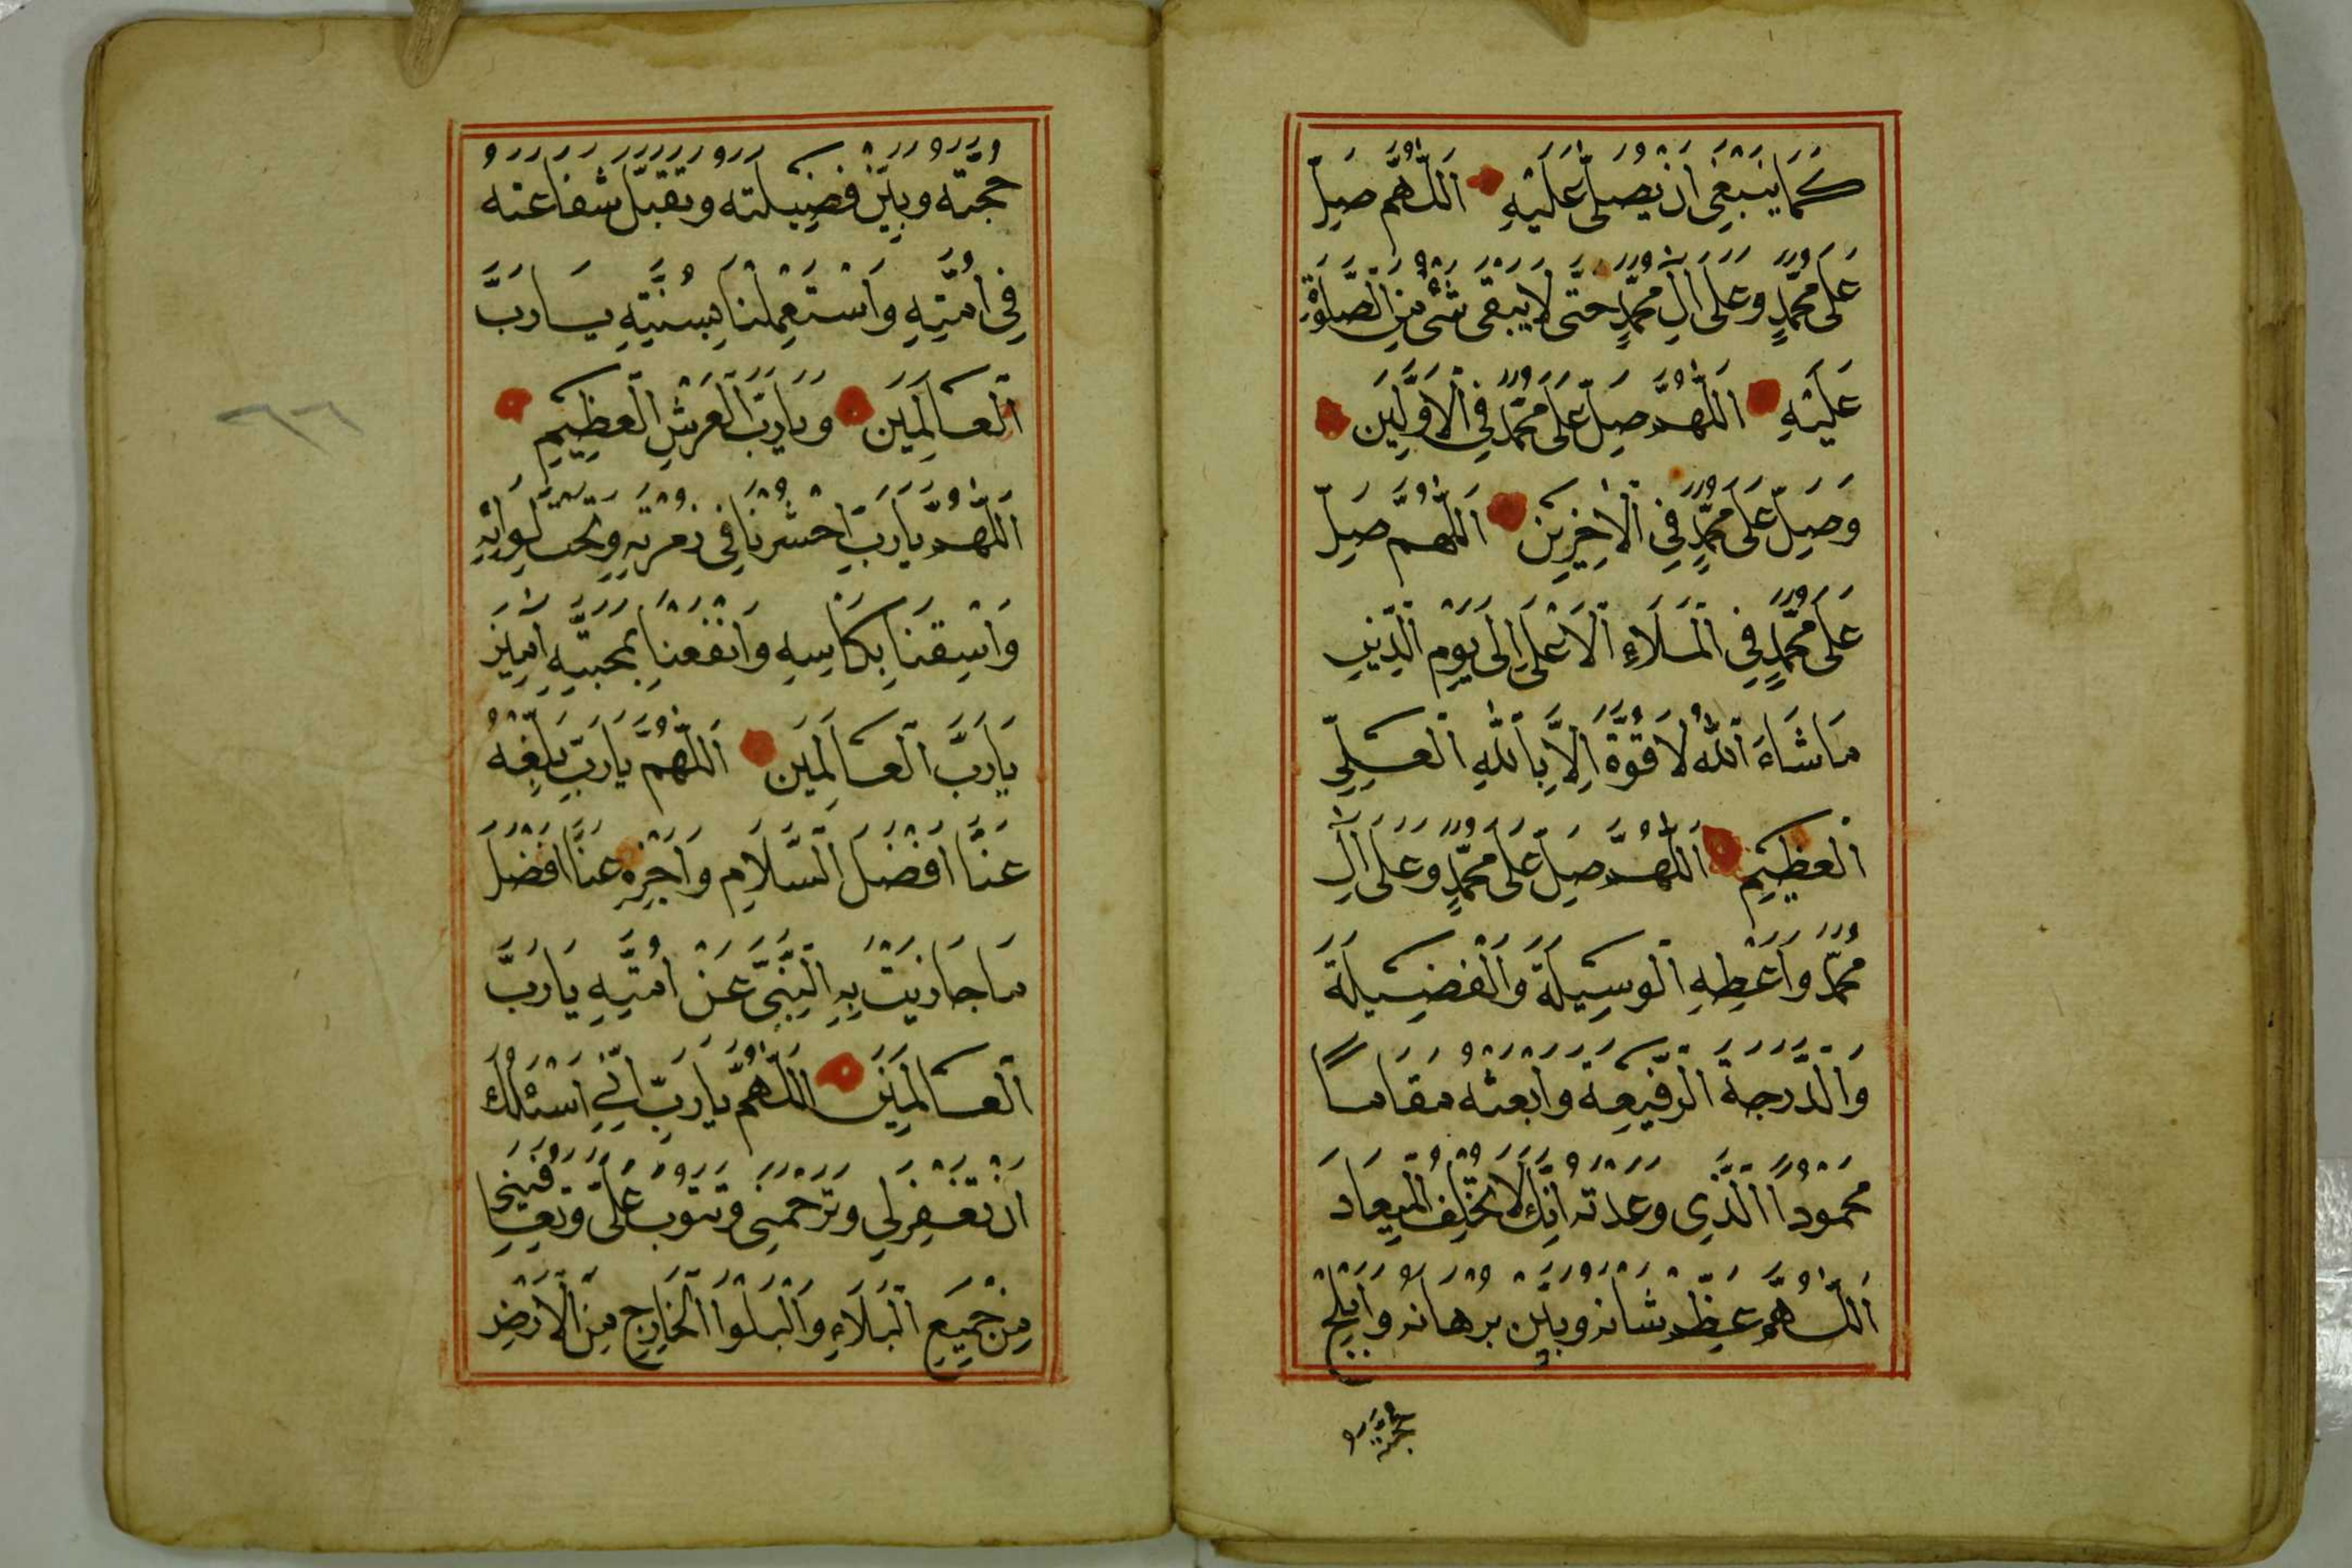 كَمَا يَنْبَغِي اَنْ يُصَلّٰى عَلَيْهِ اَللّٰهُمَّ صَلِّ
عَلٰى مُحَمَّدٍ وَعَلٰى اٰلِ مُحَمَّدٍ حَتّٰى لَا يَبْقٰى شَيْءٌ مِنَ الصَّلٰوةِ
عَلَيْهِ اَللّٰهُمَّ صَلِّ عَلٰى مُحَمَّدٍ فِي الْاَوَّلِينَ
وَصَلِّ عَلٰى مُحَمَّدٍ فِي الْاٰخِرِينَ اَللّٰهُمَّ صَلِّ
عَلٰى مُحَمَّدٍ فِي الْمَلَاءِ الْاَعْلٰى اِلٰى يَوْمِ الدِّينِ
مَا شَاءَ اللّٰهُ لَا قُوَّةَ اِلَّا بِاللّٰهِ الْعَلِيِّ
الْعَظِيمِ اَللّٰهُمَّ صَلِّ عَلٰى مُحَمَّدٍ وَعَلٰى اٰلِ
مُحَمَّدٍ وَاَعْطِهِ الْوَسِيلَةَ وَالْفَضِيلَةَ
وَالدَّرَجَةَ الرَّفِيعَةَ وَابْعَثْهُ مَقَامًا
مَحْمُودًا الَّذِي وَعَدْتَهُ اِنَّكَ لَا تُخْلِفُ الْمِيعَادَ
اَللّٰهُمَّ عَظِّمْ شَانَهُ وَبَيِّنْ بُرْهَانَهُ وَاَبْلِجْ
حُجَّتَهُ
حُجَّتَهُ وَبَيِّنْ فَضِيلَتَهُ وَتَقَبَّلْ شَفَاعَتَهُ
فِي اُمَّتِهِ وَاسْتَعْمِلْنَا بِسُنَّتِهِ يَا رَبَّ
الْعَالَمِينَ وَيَا رَبَّ الْعَرْشِ الْعَظِيمِ
اَللّٰهُمَّ يَا رَبِّ احْشُرْنَا فِي زُمْرَتِهِ وَتَحْتَ لِوَائِهِ
وَاسْقِنَا بِكَاْسِهِ وَانْفَعْنَا بِمَحَبَّتِهِ اٰمِينَ
يَا رَبَّ الْعَالَمِينَ اَللّٰهُمَّ يَا رَبِّ بَلِّغْهُ
عَنَّا اَفْضَلَ السَّلَامِ وَاجْزِهِ عَنَّا اَفْضَلَ
مَا جَازَيْتَ بِهِ النَّبِيَّ عَنْ اُمَّتِهِ يَا رَبَّ
الْعَالَمِينَ اَللّٰهُمَّ يَا رَبِّ اِنِّي اَسْئَلُكَ
اَنْ تَغْفِرَ لِي وَتَرْحَمَنِي وَتَتُوبَ عَلَيَّ وَتُعَافِيَنِي
مِنْ جَمِيعِ الْبَلَاءِ وَالْبَلْوَا الْخَارِجِ مِنَ الْاَرْضِ